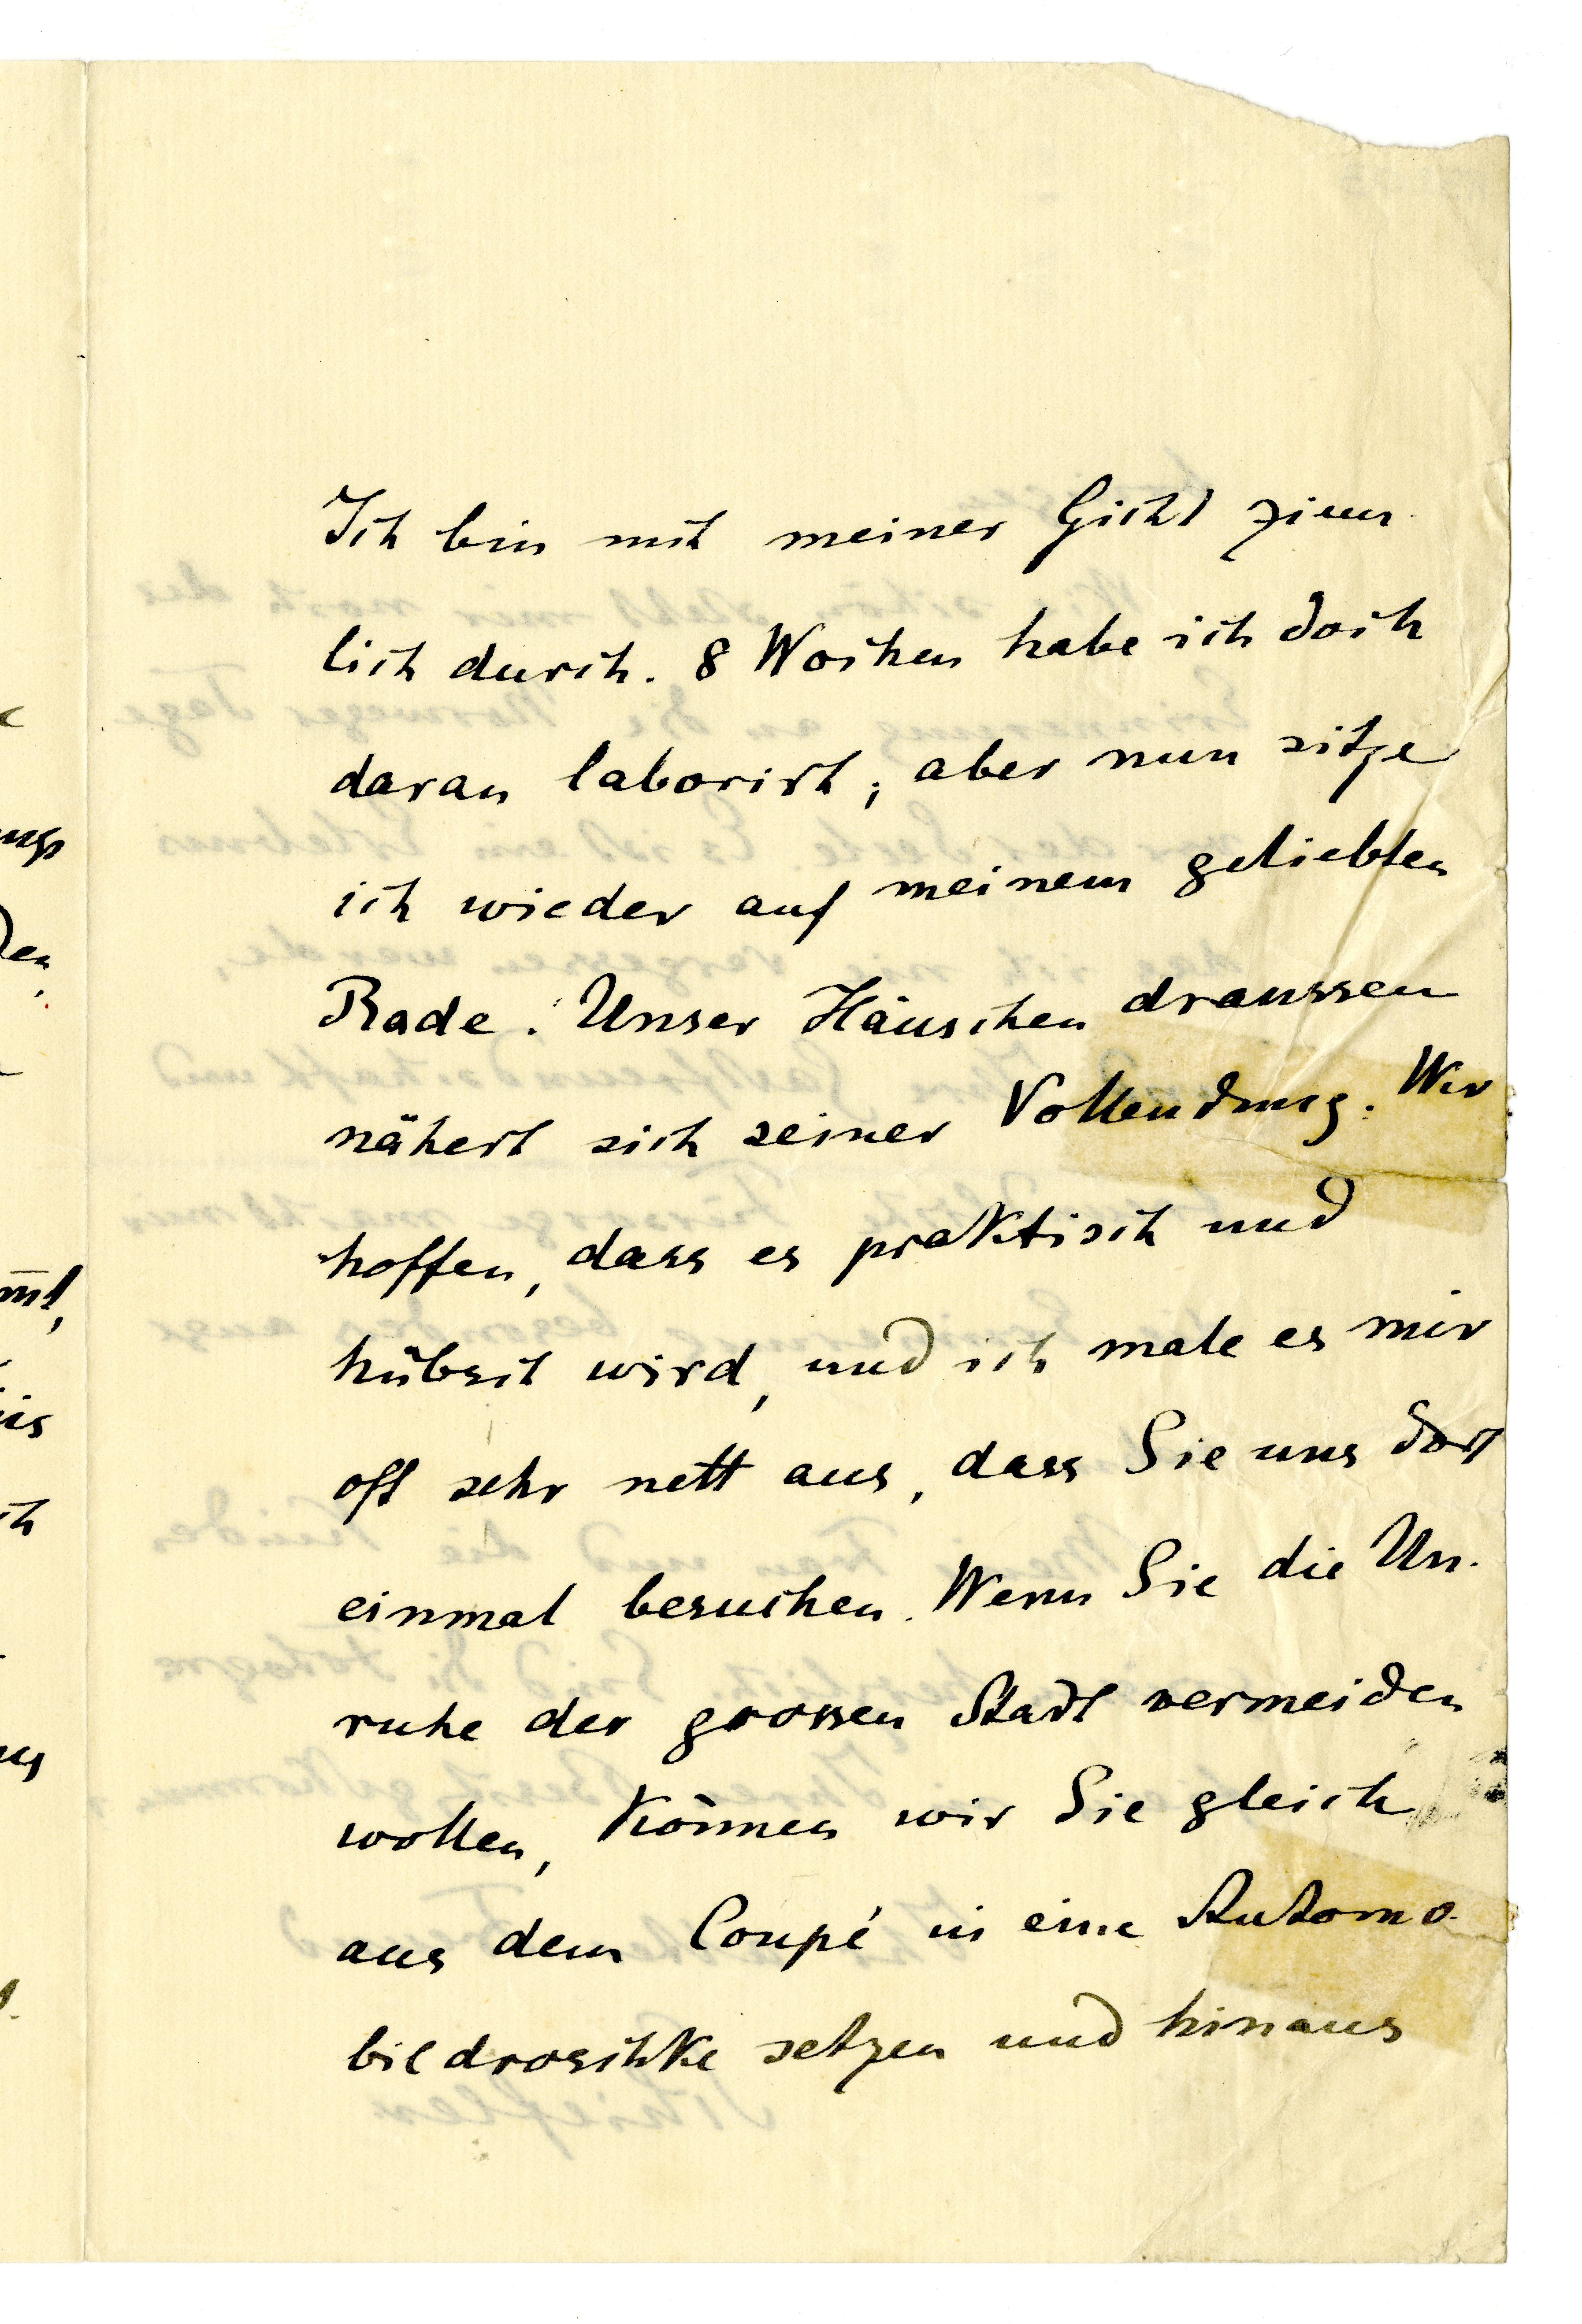 Ich bin mit meiner Gicht ziem
lich durch. 8 Wochen habe ich doch
daran laborirt; aber nun sitze
ich wieder auf meinem geliebten
Rade. Unser Häuschen draussen
nähert sich seiner Vollendung. Wir
hoffen, dass es praktisch und
hübsch wird, und ich male es mir
oft sehr nett aus, dass Sie uns dort
einmal besuchen. Wenn Sie die Un-
ruhe der grossen Stadt vermeiden
wollen, können wir Sie gleich
aus dem Coupé in eine Automo-
bildroschke setzen und hinaus